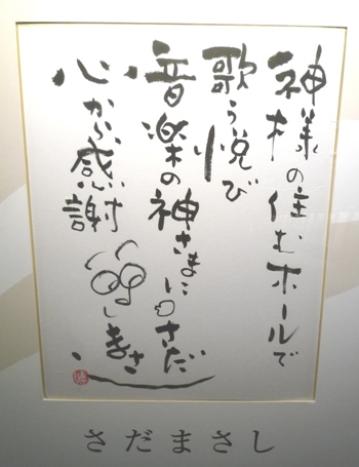 神様の住むホールで
歌う悦び
音楽の神さまに
心から感謝
さだまさし
さだまさし